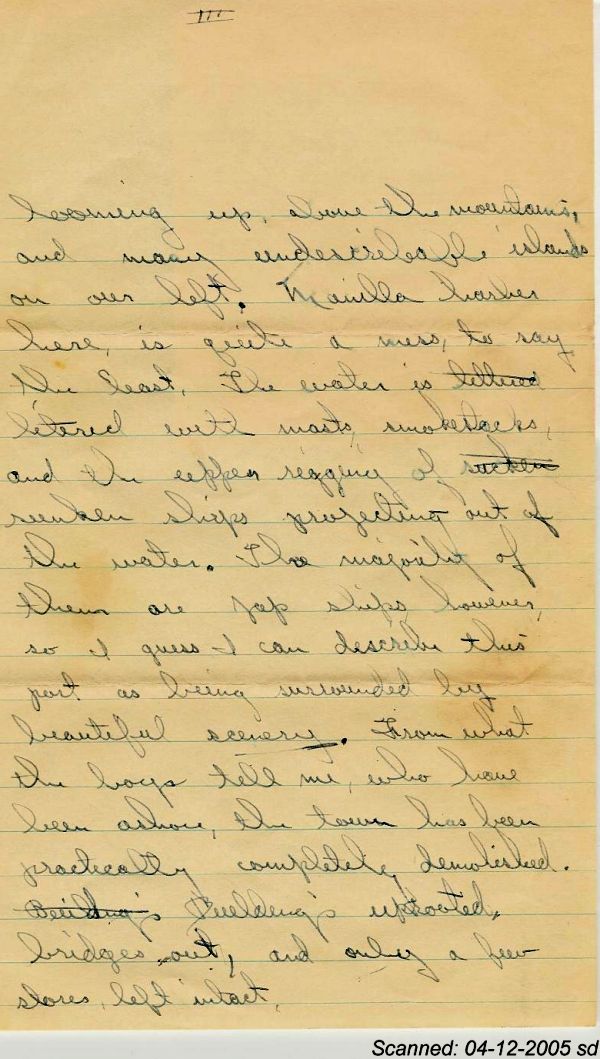 III
looming up, above the mountains,
and many undescribable islands
on our left. Manilla harber
here, is quite a mess, to say
the least. The water is lettered
letered with masts, smokestacks,
and the upper rigging of sucken
sunken ships projecting out of
the water. The majority of
them are Jap ships, however,
so I guess I can describe this
port as being surrounded by
beautiful scenery. From what
the boys tell me, who have
been ashore, the town has been
practically completely demolished.
Beilding's Buelding's uprooted,
bridges out, and only a few
stores, left intact.
Scanned: 04-12-2005 sd